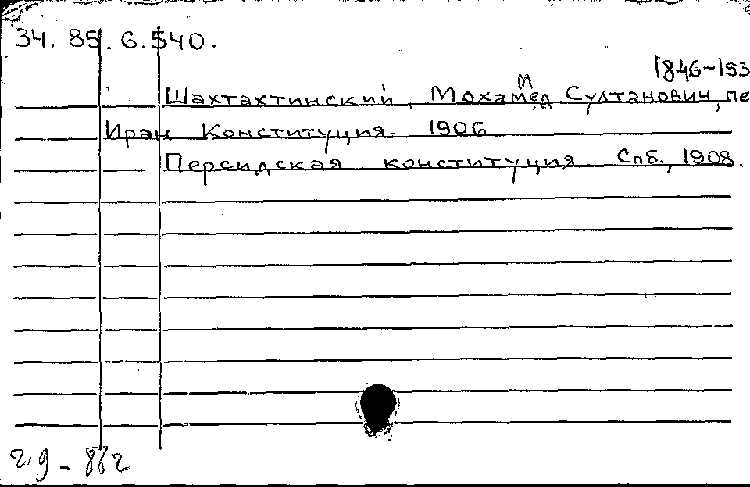 34. 85. 6. 540.
1846-193
Шахтахтинский, Мохаммед Султанович, пе
Иран. Конституция. 1906
Персидская конституция. Спб., 1908.